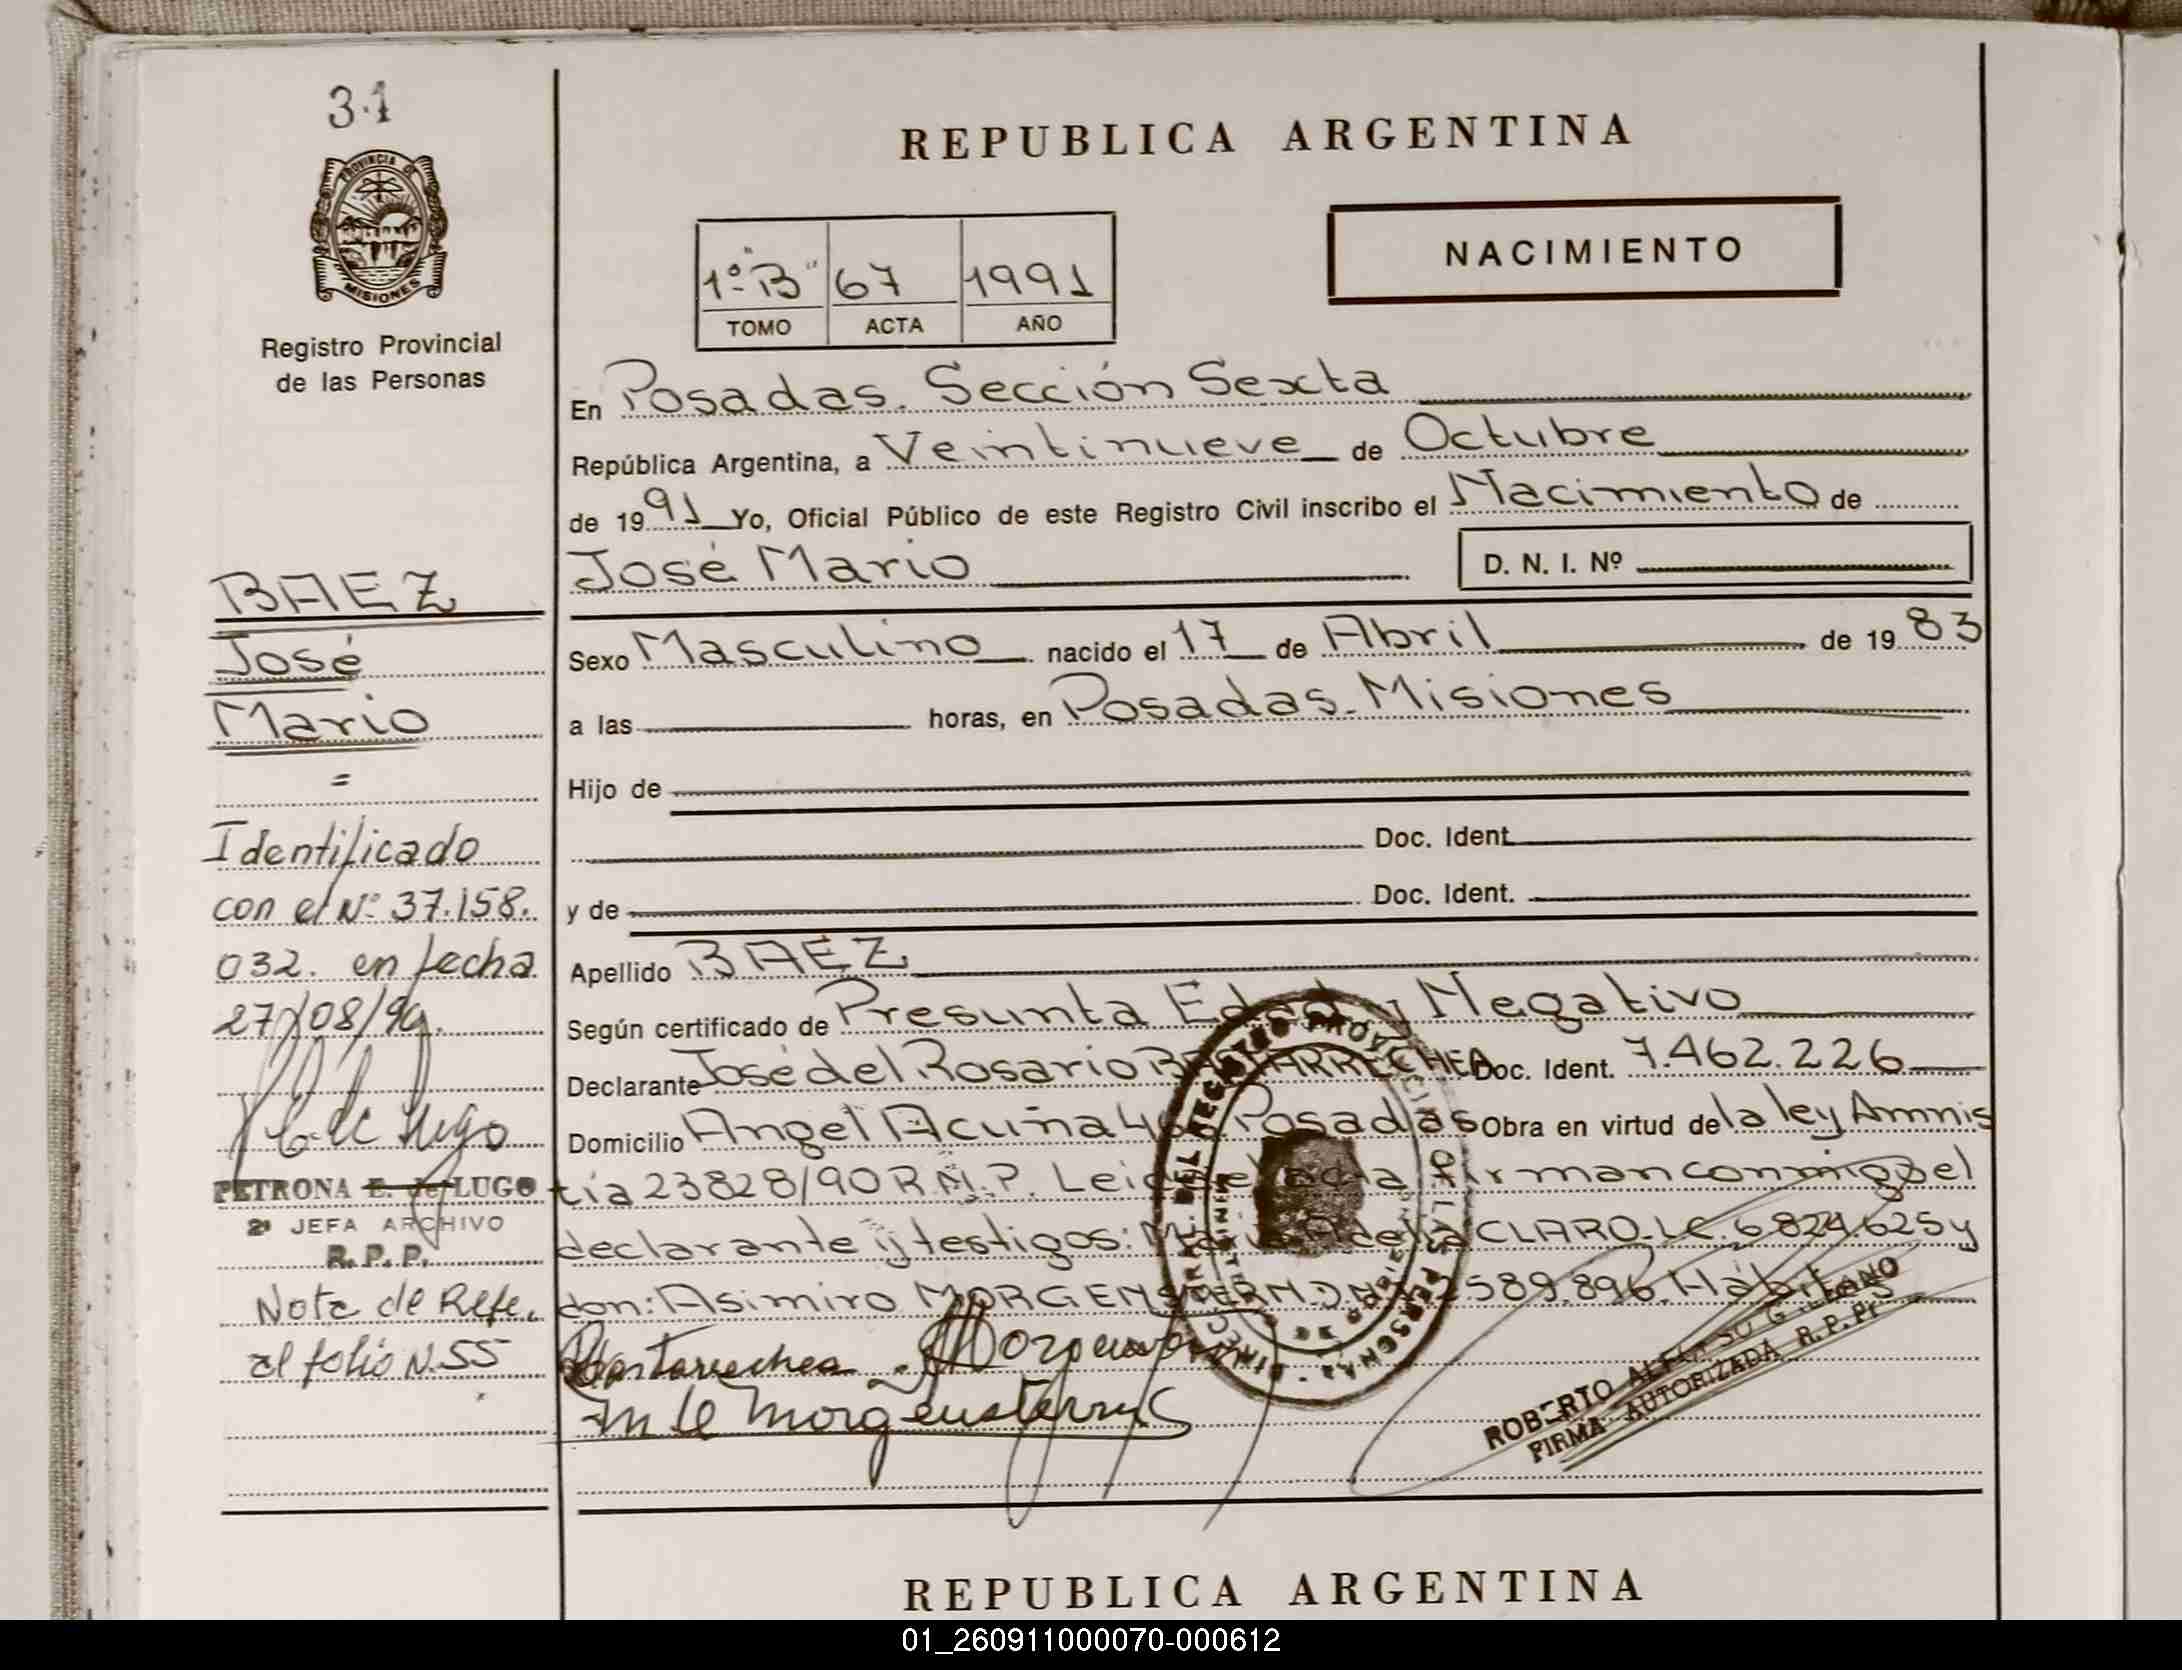 31
PROVINCIA DE
MISIONES
Registro Provincial
de las Personas
BAEZ
José
Mario
=
Identificado
con el Nº 37.158.
032. en fecha
27/08/99.
PETRONA E. de LUGO
2ª JEFA ARCHIVO
R.P.P.
Nota de Refe.
al folio N.55
REPUBLICA ARGENTINA
NACIMIENTO
1º "B" 67 1991
TOMO ACTA AÑO
En Posadas. Sección Sexta
República Argentina, a Veintinueve de Octubre
de 1991 Yo, Oficial Público de este Registro Civil inscribo el Nacimiento de
José Mario D. N. I. Nº
Sexo Masculino nacido el 17 de Abril de 1983
a las horas, en Posadas-Misiones
Hijo de
Doc. Ident.
y de Doc. Ident.
Apellido BAEZ
Según certificado de Presunta Edad y Negativo
Declarante José del Rosario BASTARRECHEA Doc. Ident. 7.462.226
Domicilio Angel Acuña Posadas Obra en virtud de la ley Amnis
tía 23828/90 R.N.P. Leida el acta firman conmigo el
declarante y testigos: CLARO. LC. 6824.625 y
don: Asimiro MORGENSTERN. 589.896. Hábiles
Bastarrechea
Morgenstern
ROBERTO
FIRMA AUTORIZADA R.P.P.
REPUBLICA ARGENTINA
01_260911000070-000612